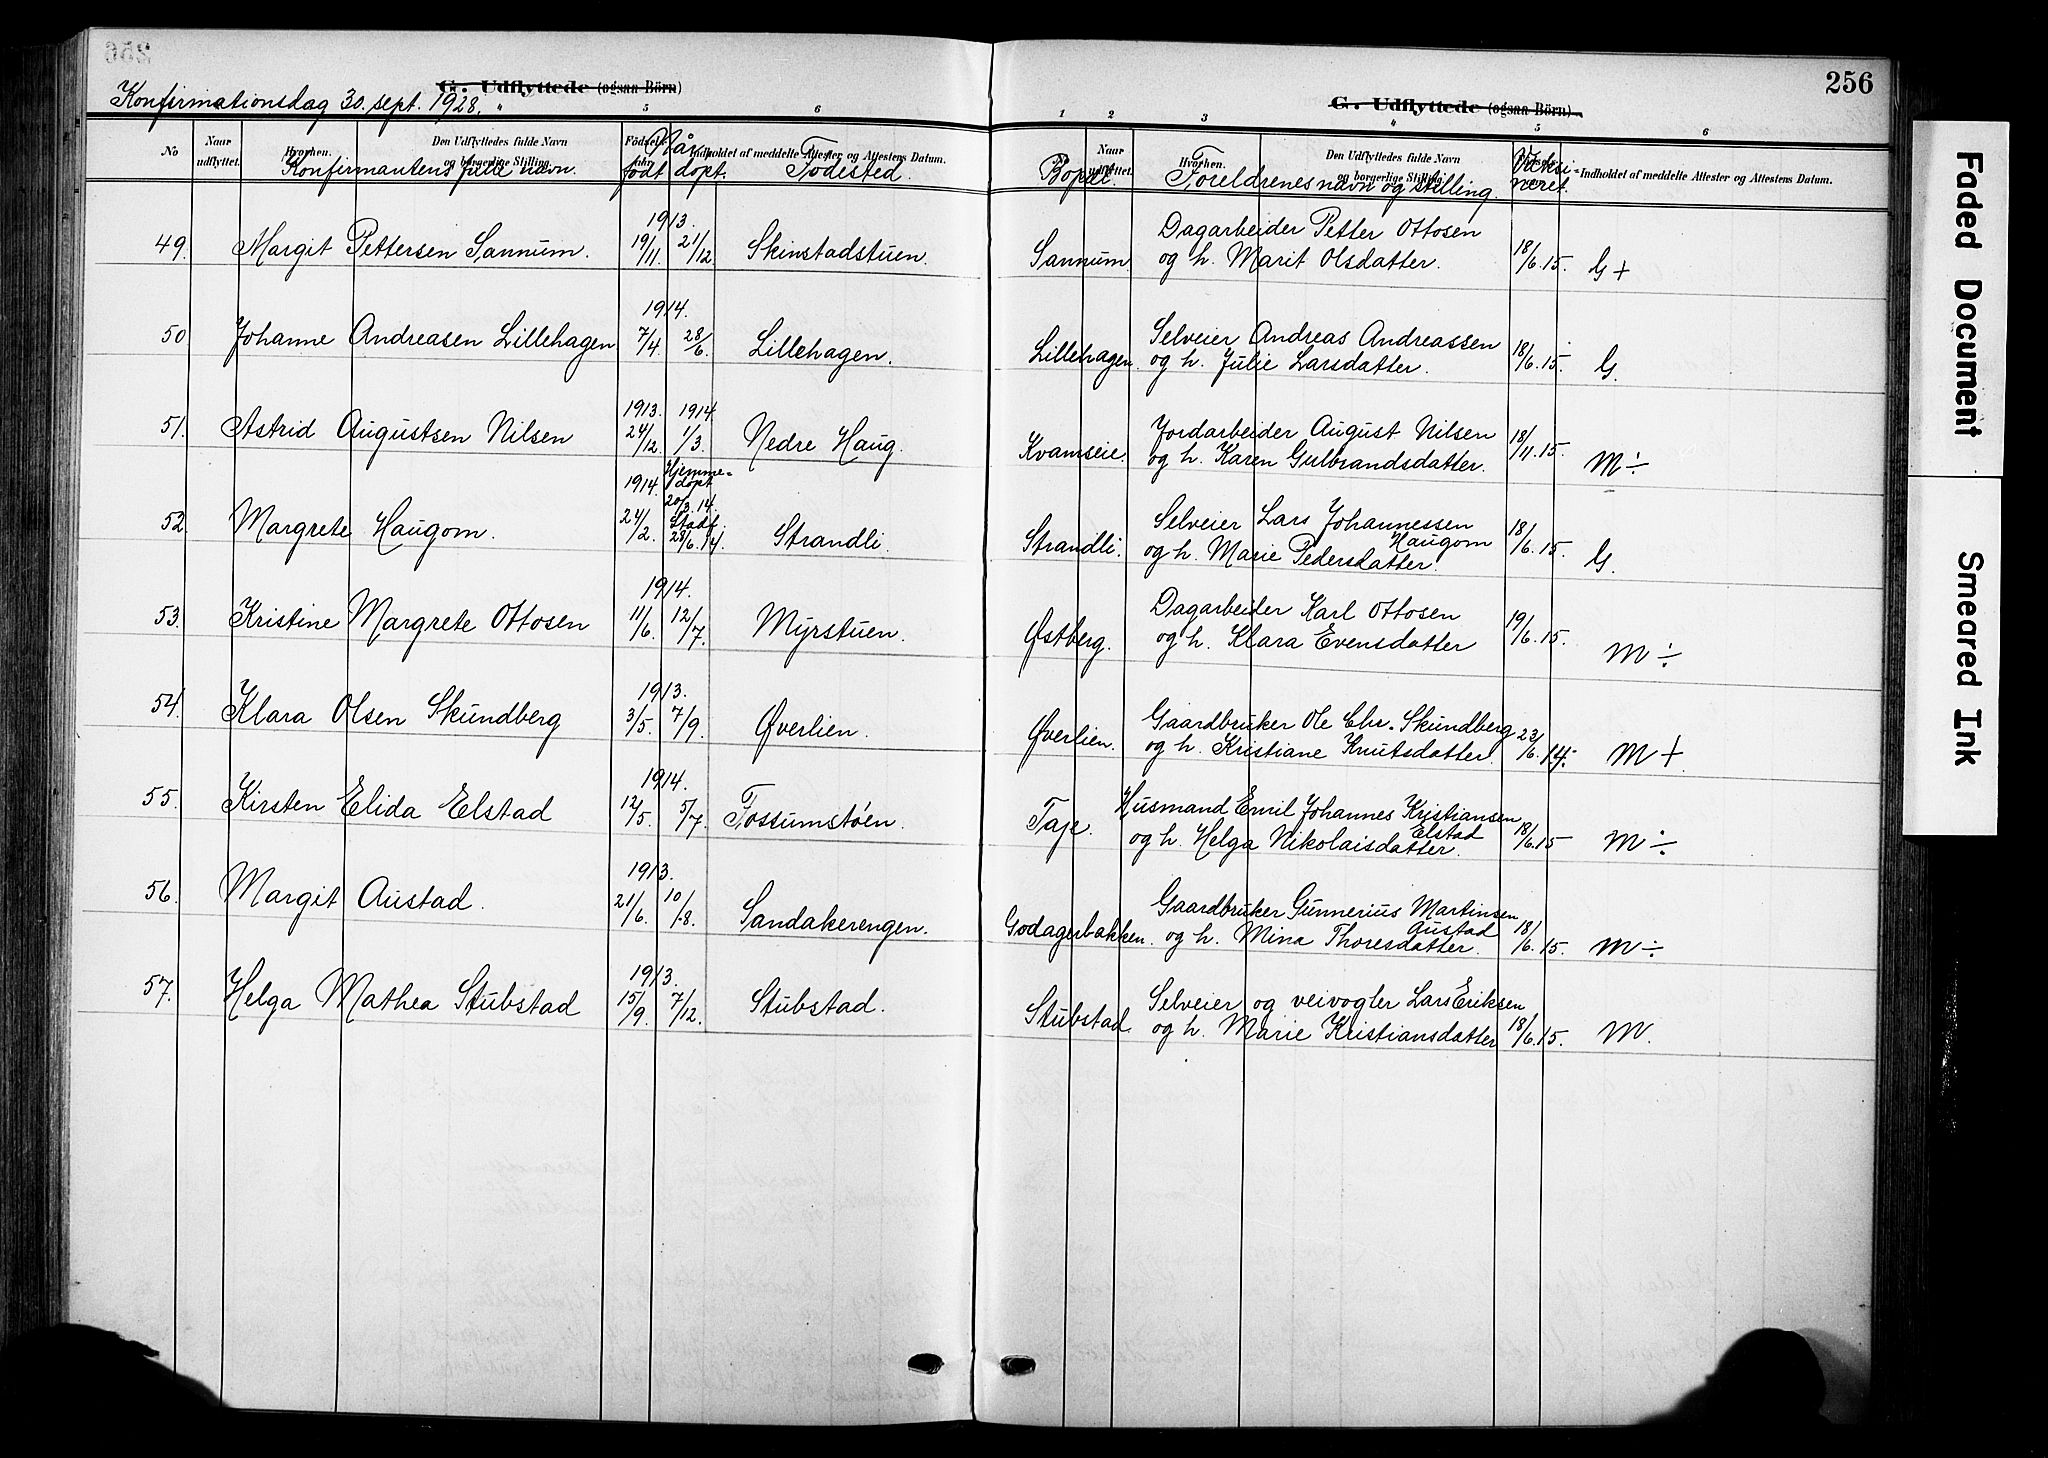 256
G. Udflyttede (ogsaa Börn)
Konfirmationsdag 30. sept. 1928.
5 6
No Naar udflyttet. Hvorhen. Den Udflyttedes fulde Navn og borgerlige Stilling. Indholdet af meddelte Attester og Attestens Datum.
Konfirmantens fulle navn. Når født døpt. Fødested.
49. Margit Pettersen Sannum. 1913. 19/11. 21/12 Skinstadstuen.
50 Johanne Andreasen Lillehagen 1914. 7/4. 28/6. Lillehagen.
51. Astrid Augustsen Nilsen 1913. 24/12. 1914. 1/3. Nedre Haug.
52. Margrete Haugom. 1914. 24/2. Hjemmedøpt 20/3.14. Stadf. 28/6.14. Strandli.
53. Kristine Margrete Ottosen 1914. 11/6. 12/7. Myrstuen.
54. Klara Olsen Skundberg 1913. 3/5. 7/9. Øverlien.
55. Kirsten Elida Elstad 1914. 12/5. 5/7. Fossumstøen.
56. Margit Austad. 1913. 21/6. 10/8. Sandakerengen.
57. Helga Mathea Stubstad 1913. 15/9. 7/12. Stubstad.
256
G. Udflyttede (ogsaa Börn)
1 2 3 4 5 6
Naar udflyttet. Hvorhen. Den Udflyttedes fulde Navn og borgerlige Stilling. Indholdet af meddelte Attester og Attestens Datum.
Bopæl. Foreldrenes navn og stilling. Vaksineret.
Dagarbeider Petter Ottosen
Sannum. og h. Marit Olsdatter. 18/6.15. G +
Selveier Andreas Andreassen
Lillehagen. og h. Julie Larsdatter. 18/6.15. G.
Jordarbeider August Nilsen
Kvamseie. og h. Karen Gulbrandsdatter. 18/11.15. M ÷
Selveier Lars Johannessen Haugom
Strandli. og h. Marie Pedersdatter. 18/6.15. G.
Dagarbeider Karl Ottosen
Østberg. og h. Klara Evensdatter 19/6.15. M ÷
Gaardbruker Ole Chr. Skundberg
Øverlien. og h. Kristiane Knutsdatter. 23/6.14. M +
Husmand Emil Johannes Kristiansen Elstad
Taje. og h. Helga Nikolaisdatter. 18/6.15 M ÷
Gaardbruker Gunnerius Martinsen Austad
Godagerbakken. og h. Mina Thoresdatter. 18/6.15. M ÷
Selveier og veivogter Lars Eriksen
Stubstad. og h. Marie Kristiansdatter 18/6.15. M.
Faded Document
Smeared Ink